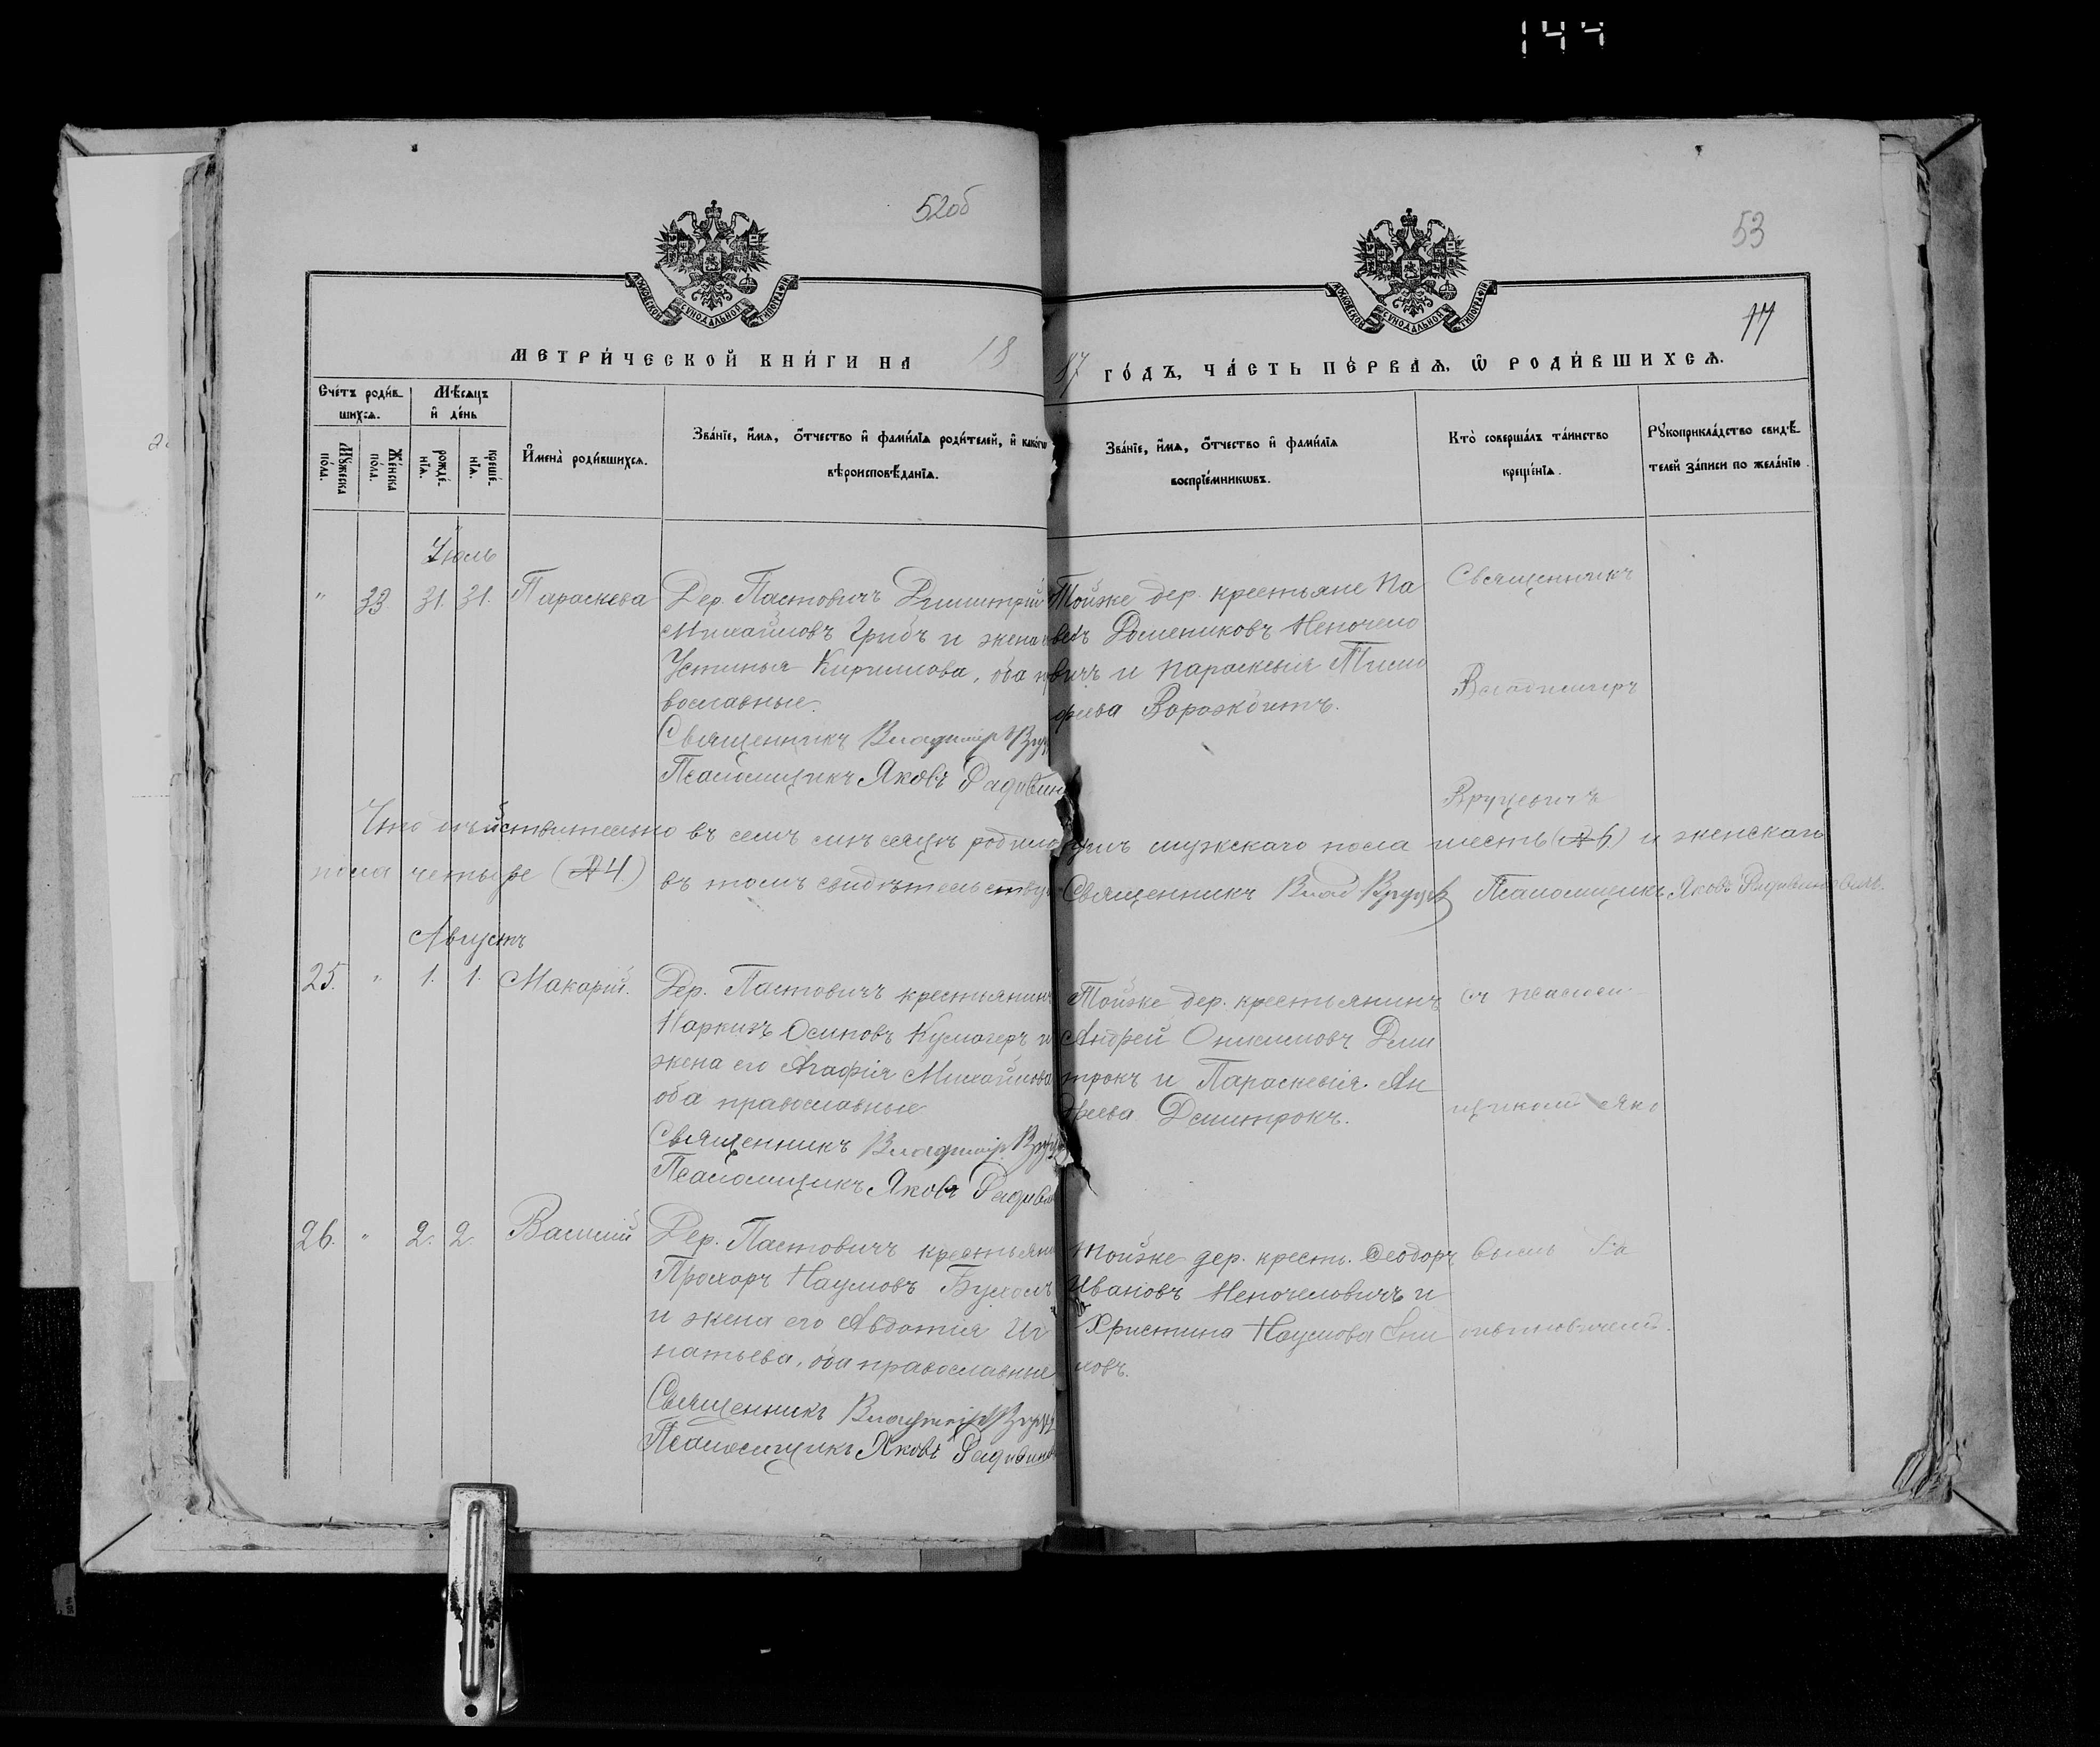 144
52об
53
17
МОСКОВСКОЙ СѴНОДАЛЬНОЙ ТИПОГРАФІИ
МОСКОВСКОЙ СѴНОДАЛЬНОЙ ТИПОГРАФІИ
МЕТРИ́ЧЕСКОЙ КНИ́ГИ НА 18
87 ГО́ДЪ, ЧА́СТЬ ПЕ́РВАѦ, Ѽ РОДИ́ВШИХСѦ.
Сче́тъ роди́вшихсѧ.
Мѣ́сѧцъ и҆ де́нь
И҆мена̀ роди́вшихсѧ.
Зва́нїе, и҆́мѧ, ѻ҆́тчество и҆ фами́лїѧ роди́телей, и҆ како́гѡ
вѣроисповѣ́данїѧ.
Зва́нїе, и҆́мѧ, ѻ҆́тчество и҆ фами́лїѧ
воспрїе́мникѡвъ.
Кто̀ соверша́лъ та́инство
креще́нїѧ.
Рꙋкоприкла́дство свидѣ́телей за́писи по жела́нїю.
Мꙋ́жеска по́ла.
Же́нска по́ла.
рожде́нїѧ.
креще́нїѧ.
Іюль
" 33. 31. 31. Параскева
Дер. Пастовичъ Димитрій
Михайловъ Грибъ и жена
Устинья Кирилова, оба пра
вославные.
Священникъ Владиміръ Вруц
Псаломщикъ Яковъ Радивин
Тойже дер. крестьяне Па
велъ Домениковъ Непочело
вичъ и Параскевія Тимо
феева Ворожбитъ.
Священникъ
Владимиръ
Вруцевичъ
Что дѣйствительно въ семъ мѣсяцѣ родило
сь мужскаго пола шесть (№ 6) и женскаго
пола четыре (№ 4.) въ томъ свидѣтельствую
Священникъ Влад Вруцев Псаломщикъ Яковъ Радивиновичъ.
Августъ
25. " 1. 1. Макарій.
Дер. Пастовичъ крестьянинъ
Наркизъ Осиповъ Кушнеръ и
жена его Агафія Михайлова
оба православные
Священникъ Владиміръ Вруц
Псаломщикъ Яковъ Радивин
Тойже дер. крестьянинъ
Андрей Онисимовъ Дми
трокъ и Параскевія Ан
дреева Дмитрокъ.
съ псалом
щикомъ Яко
26. " 2. 2. Василій
Дер. Пастовичъ крестьянинъ
Прохоръ Наумовъ Бухолъ
и жена его Авдотія Иг
натьева, оба православные
Священникъ Владиміръ Вруц
Псаломщикъ Яковъ Радивинов
Тойже дер. крест. Ѳеодоръ
Ивановъ Непочеловичъ и
Христина Наумова
ховъ.
вымъ Ра